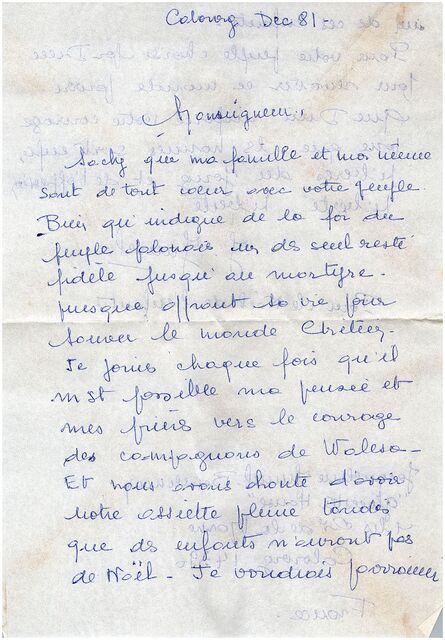 Cabourg Dec 81 -
Monseigneur,
Sachez que ma famille et moi même
sont de tout cœur avec votre peuple.
Bien qu'indigne de la foi du
peuple polonais un ds seul resté
fidèle jusqu'au martyre -
puisque offrant sa vie pour
sauver le monde Chrétien -
Je joins chaque fois qu'il
m'st possible ma pensée et
mes prières vers le courage
des compagnons de Walesa -
Et nous avons honte d'avoir
notre assiette pleine tandis
que ds enfants n'auront pas
de Noël - Je voudrais